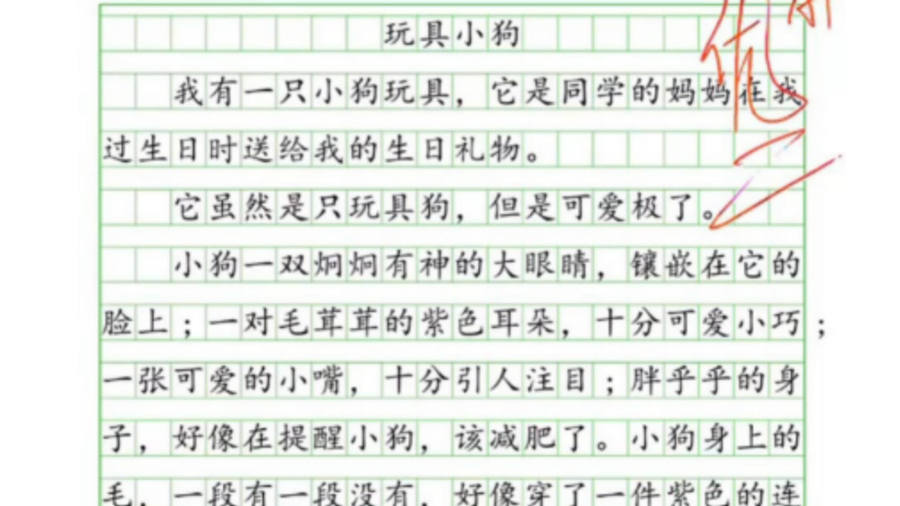 玩具小狗
我有一只小狗玩具，它是同学的妈妈在我
过生日时送给我的生日礼物。
它虽然是只玩具狗，但是可爱极了。
小狗一双炯炯有神的大眼睛，镶嵌在它的
脸上；一对毛茸茸的紫色耳朵，十分可爱小巧；
一张可爱的小嘴，十分引人注目；胖乎乎的身
子，好像在提醒小狗，该减肥了。小狗身上的
毛，一段有一段没有，好像穿了一件紫色的连